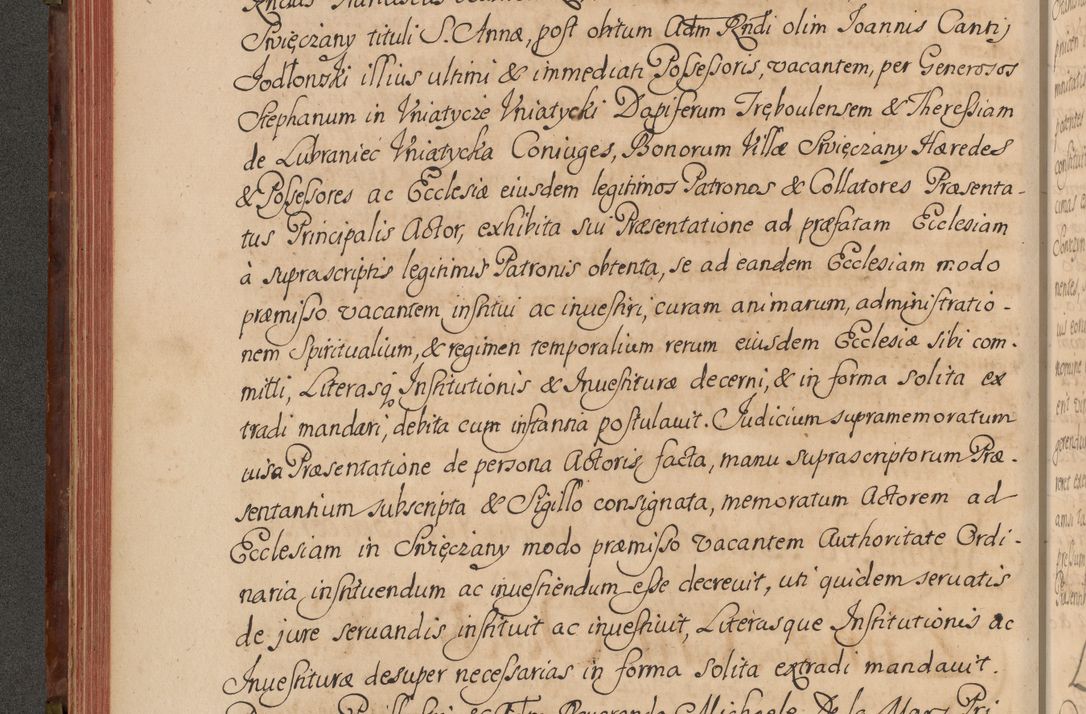 Swięczany tituli S. Annæ, post obitum Adm Rndi olim Ioannis Cantij
Jodłonski illius ultimi & immediati Possessoris, vacantem, per Generosos
Stephanum in Vniatycze Vniatycki Dapiferum Tręboulensem & Theressiam
de Lubraniec Vniatycka Coniuges, Bonorum Villæ Swięczany Hæredes
& Possessores ac Ecclesiæ eiusdem legitimos Patronos & Collatores Præsenta-
tus Principalis Actor, exhibita sui Præsentatione ad præfatam Ecclesiam
à suprascriptis legitimis Patronis obtenta, se ad eandem Ecclesiam modo
præmisso vacantem institui ac inuestiri, curam animarum, administratio-
nem Spiritualium, & regimen temporalium rerum eiusdem Ecclesiæ sibi com-
mitti, Literasq Institutionis & Inuestituræ decerni, & in forma solita ex
tradi mandari, debita cum instantia postulauit. Iudicium supramemoratum
uisa Præsentatione de persona Actoris facta, manu suprascriptorum Præ-
sentantium subscripta & Sigillo consignata, memoratum Actorem ad
Ecclesiam in Swięczany modo præmisso vacantem Authoritate Ordi-
naria instituendum ac inuestiendum esse decreuit, uti quidem seruatis
de jure seruandis instituit ac inuestiuit, Literasque Institutionis ac
Inuestituræ desuper necessarias in forma solita extradi mandauit.